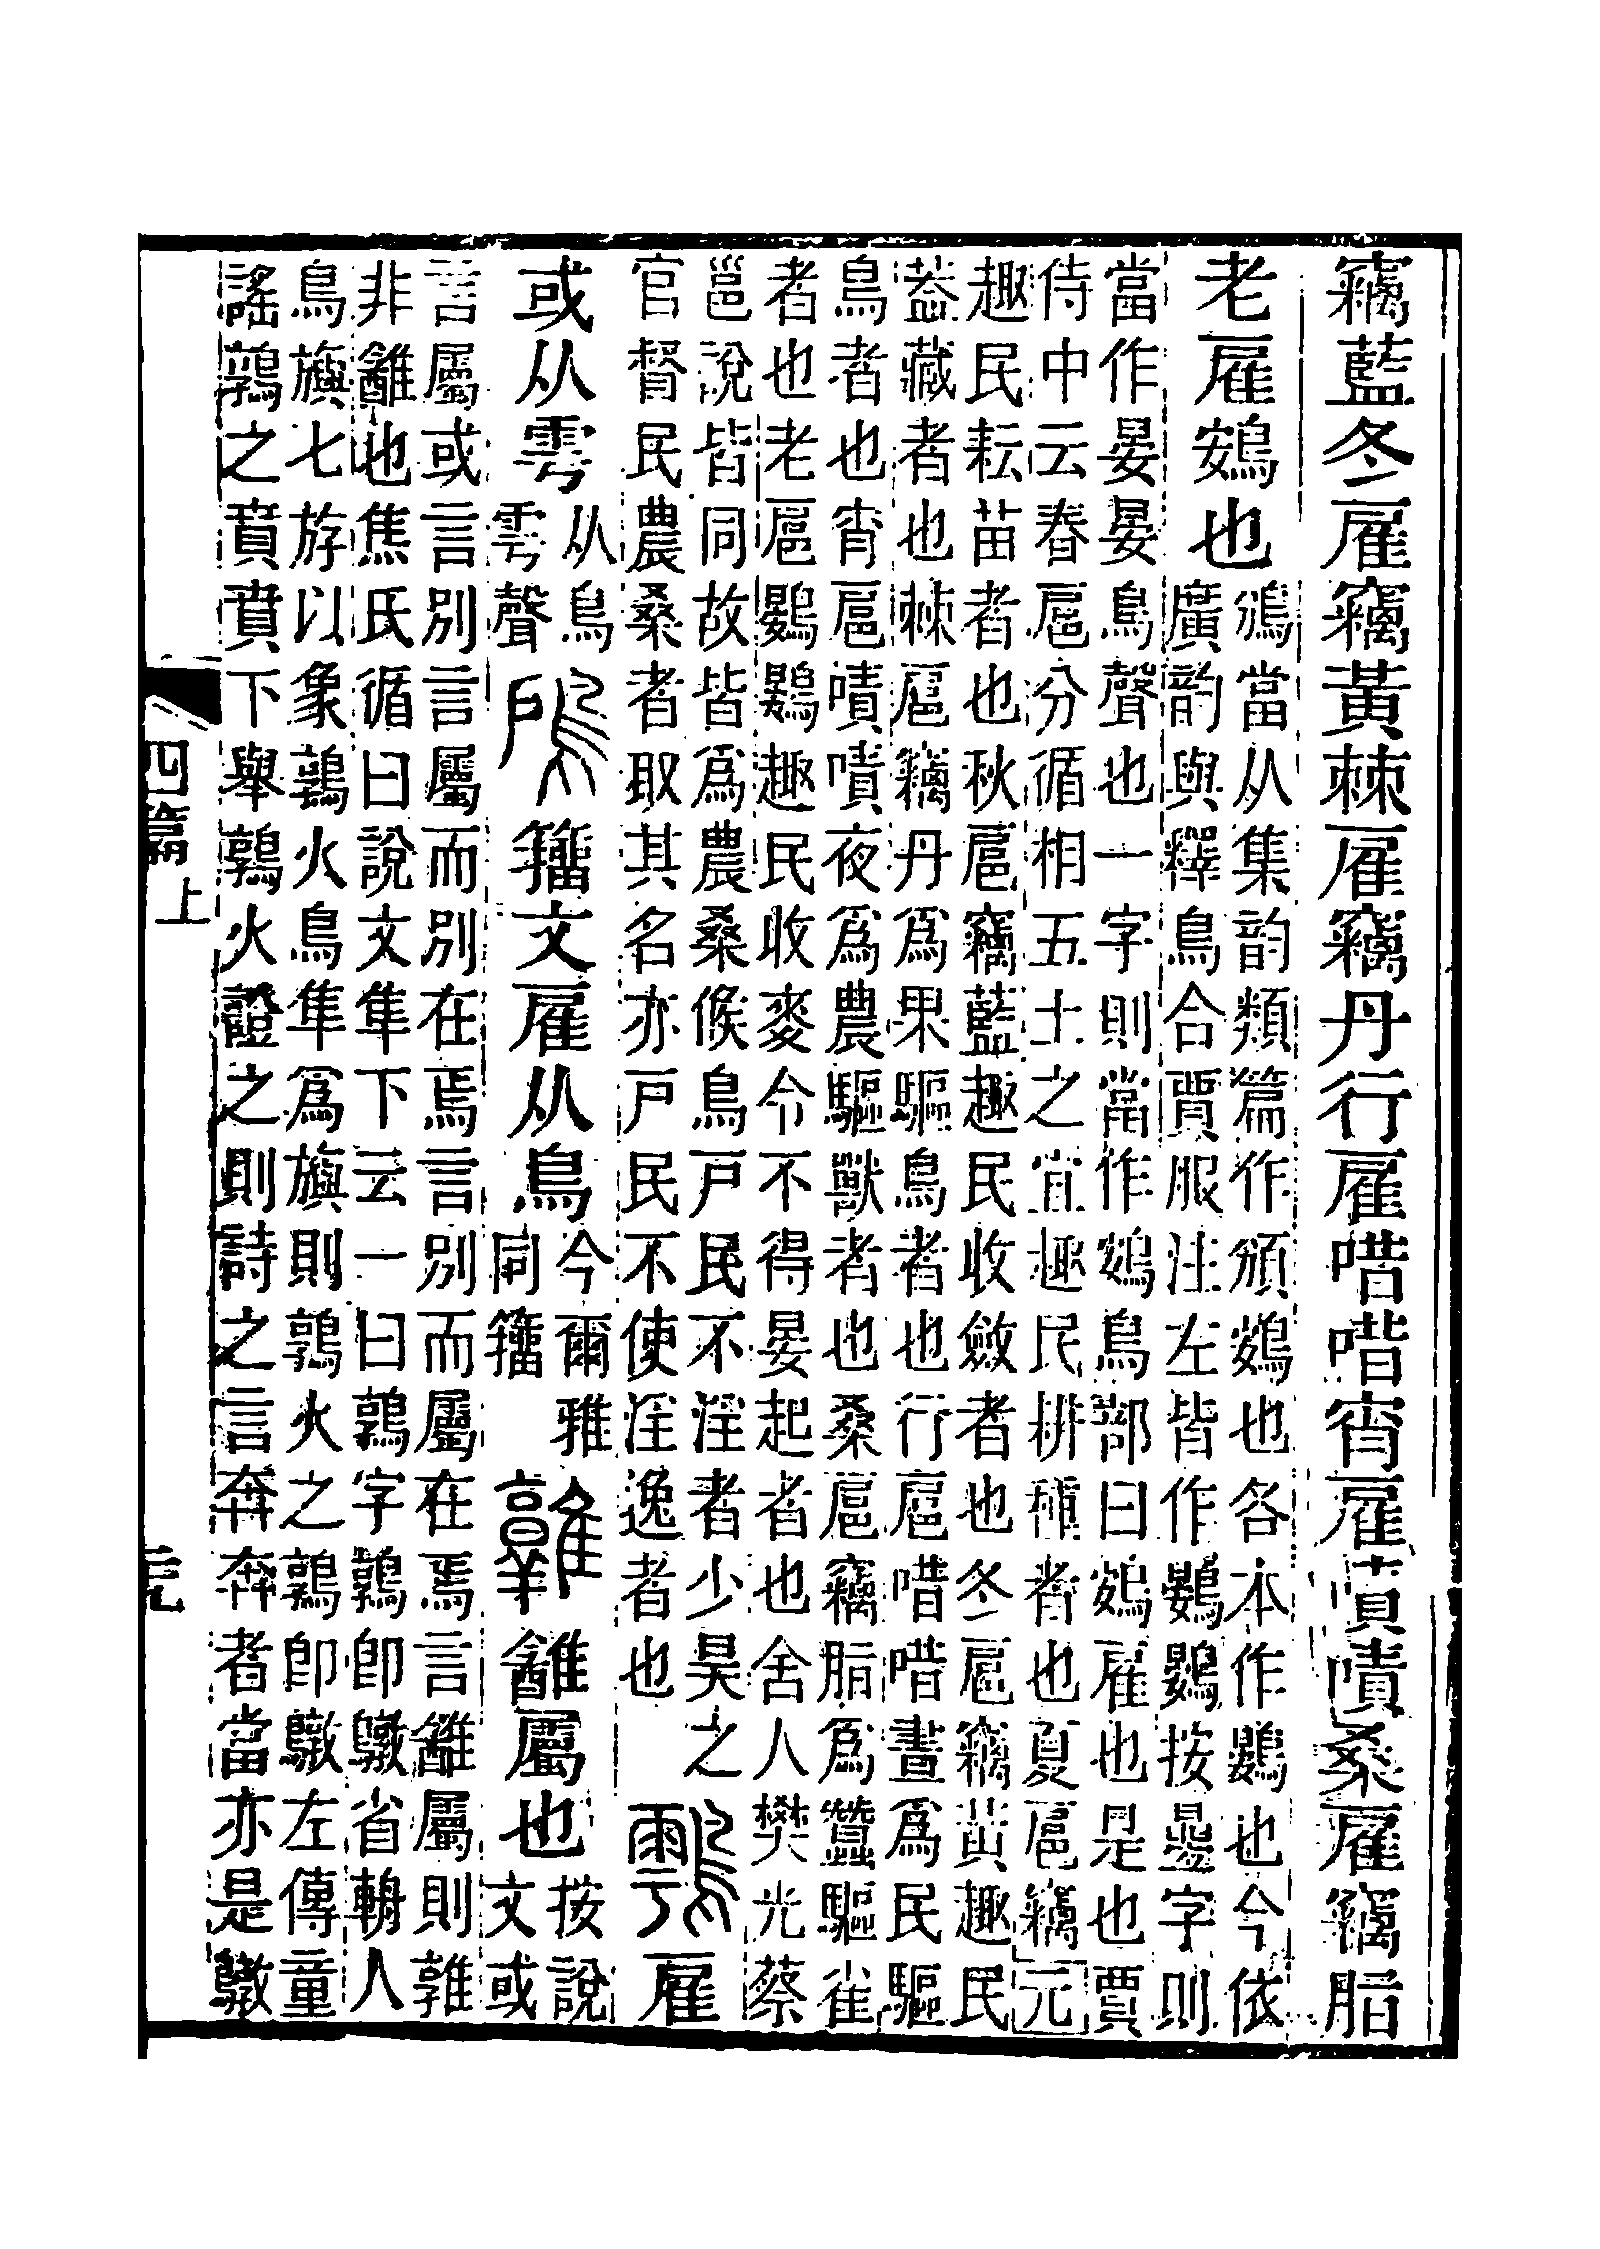 竊藍冬雇竊黃棘雇竊丹行雇唶唶宵雇嘖嘖桑雇竊脂
老雇鴳也
鳻當从集韵類篇作頒鴳也各本作鷃也今依
廣韵與釋鳥合賈服注左皆作鷃鷃按疊字則
當作晏晏鳥聲也一字則當作鴳鳥部曰鴳雇也是也賈
侍中云春扈分循相五土之宜趣民耕種者也夏扈竊元
趣民耘苗者也秋扈竊藍趣民收斂者也冬扈竊黃趣民
葢藏者也棘扈竊丹爲果驅鳥者也行扈唶唶晝爲民驅
鳥者也宵扈嘖嘖夜爲農驅獸者也桑扈竊脂爲蠶驅雀
者也老扈鷃鷃趣民收麥令不得晏起者也舍人樊光蔡
邕說皆同故皆爲農桑候鳥戸民不淫者少昊之
官督民農桑者取其名亦戸民不使淫逸者也
雇
或从雩
从鳥
雩聲
籒文雇从鳥
今爾雅
同籒
䨄屬也
按說
文或
言屬或言別言屬而別在焉言別而屬在焉言䨄屬則
非䨄也焦氏循曰說文隼下云一曰鶉字鶉卽省輈人
鳥旟七斿以象鶉火鳥隼爲旟則鶉火之鶉卽左傳童
謠鶉之賁賁下舉鶉火火證之則詩之言奔奔者當亦是
四篇上